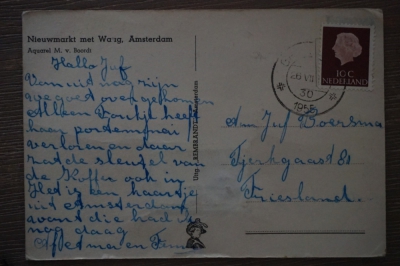 Nieuwmarkt met Waag, Amsterdam
Aquarel M. v. Bosdt
Hallo Juf
Vanuit wij zijn
goed overgekomen
Alleen heeft
haar portemonnai
verloren en daar
zat de sleutel van
de koffer ook in
Het is een kaartje
uit Amsterdam
want die had ik
nog daag
en
Uitg. REMBRANDT Amsterdam
10C
NEDERLAND
30
1955
Aan Juf Boersma
Tjerkgaast 81
Friesland.